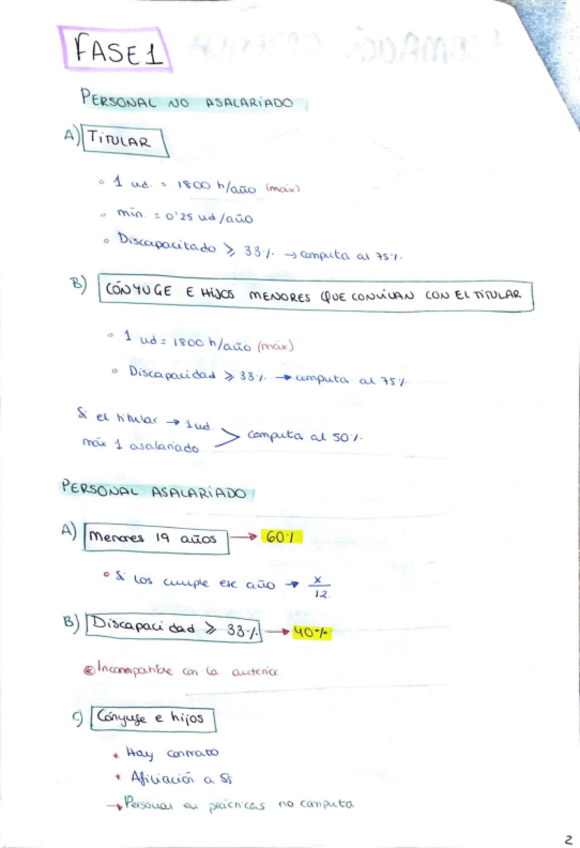 FASE 1
PERSONAL NO ASALARIADO
A) TITULAR
1 ud. = 1800 h/año (máx)
mín. = 0'25 ud/año
Discapacitado ≥ 33% → computa al 75%
B) CÓNYUGE E HIJOS MENORES QUE CONVIVAN CON EL TITULAR
1 ud = 1800 h/año (máx)
Discapacidad ≥ 33% → computa al 75%
Si el titular → 1 ud
máx 1 asalariado > computa al 50%
PERSONAL ASALARIADO
A) Menores 19 años → 60%
Si los cumple ese año → x/12
B) Discapacidad ≥ 33% → 40%
* Incompatible con la anterior
C) Cónyuge e hijos
* Hay contrato
* Afiliación a SS
→ Personal en prácticas no computa
2